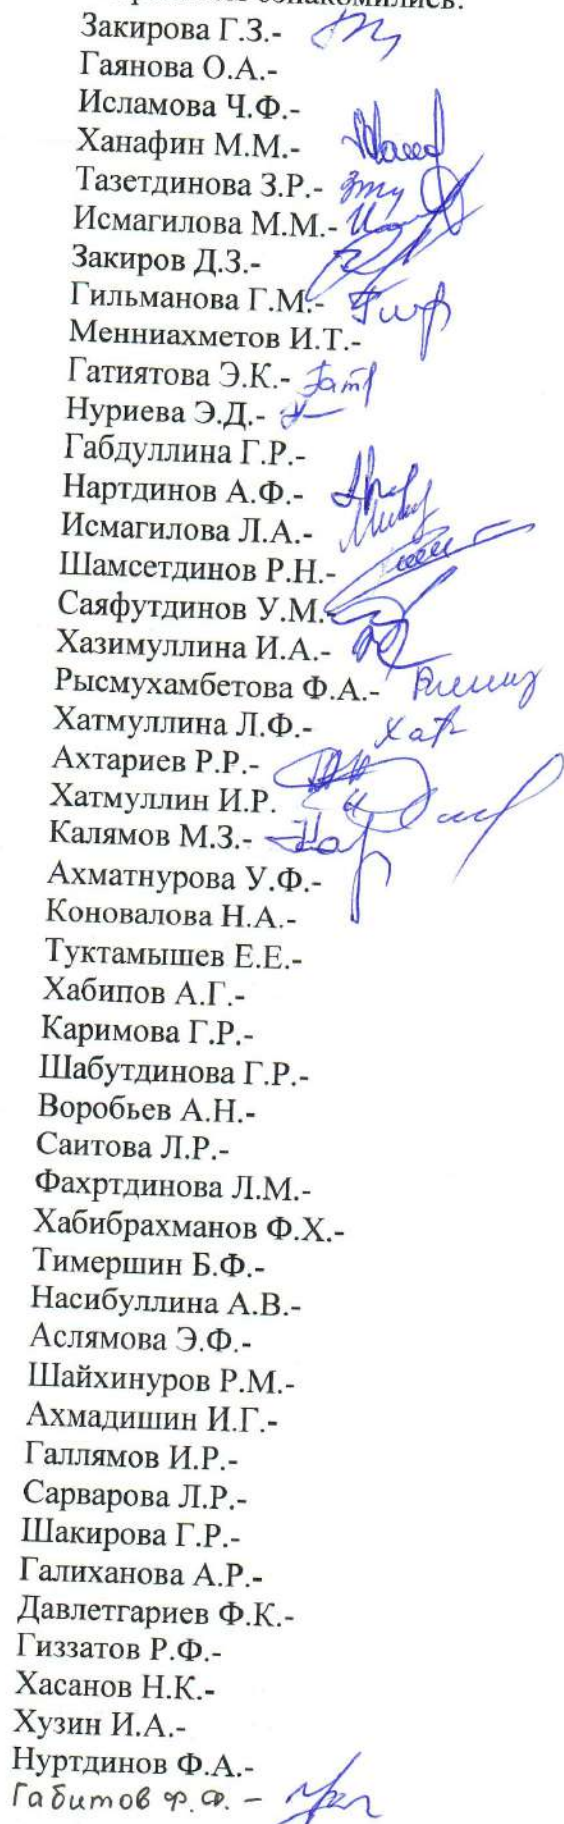 ознакомились:
Закирова Г.З.-
Гаянова О.А.-
Исламова Ч.Ф.-
Ханафин М.М.-
Тазетдинова З.Р.-
Исмагилова М.М.-
Закиров Д.З.-
Гильманова Г.М.-
Менниахметов И.Т.-
Гатиятова Э.К.- Гат
Нуриева Э.Д.-
Габдуллина Г.Р.-
Нартдинов А.Ф.-
Исмагилова Л.А.-
Шамсетдинов Р.Н.-
Саяфутдинов У.М.-
Хазимуллина И.А.-
Рысмухамбетова Ф.А.-
Хатмуллина Л.Ф.- Хат
Ахтариев Р.Р.-
Хатмуллин И.Р.
Калямов М.З.-
Ахматнурова У.Ф.-
Коновалова Н.А.-
Туктамышев Е.Е.-
Хабипов А.Г.-
Каримова Г.Р.-
Шабутдинова Г.Р.-
Воробьев А.Н.-
Саитова Л.Р.-
Фахртдинова Л.М.-
Хабибрахманов Ф.Х.-
Тимершин Б.Ф.-
Насибуллина А.В.-
Аслямова Э.Ф.-
Шайхинуров Р.М.-
Ахмадишин И.Г.-
Галлямов И.Р.-
Сарварова Л.Р.-
Шакирова Г.Р.-
Галиханова А.Р.-
Давлетгариев Ф.К.-
Гиззатов Р.Ф.-
Хасанов Н.К.-
Хузин И.А.-
Нуртдинов Ф.А.-
Габитов Ф.Ф. -